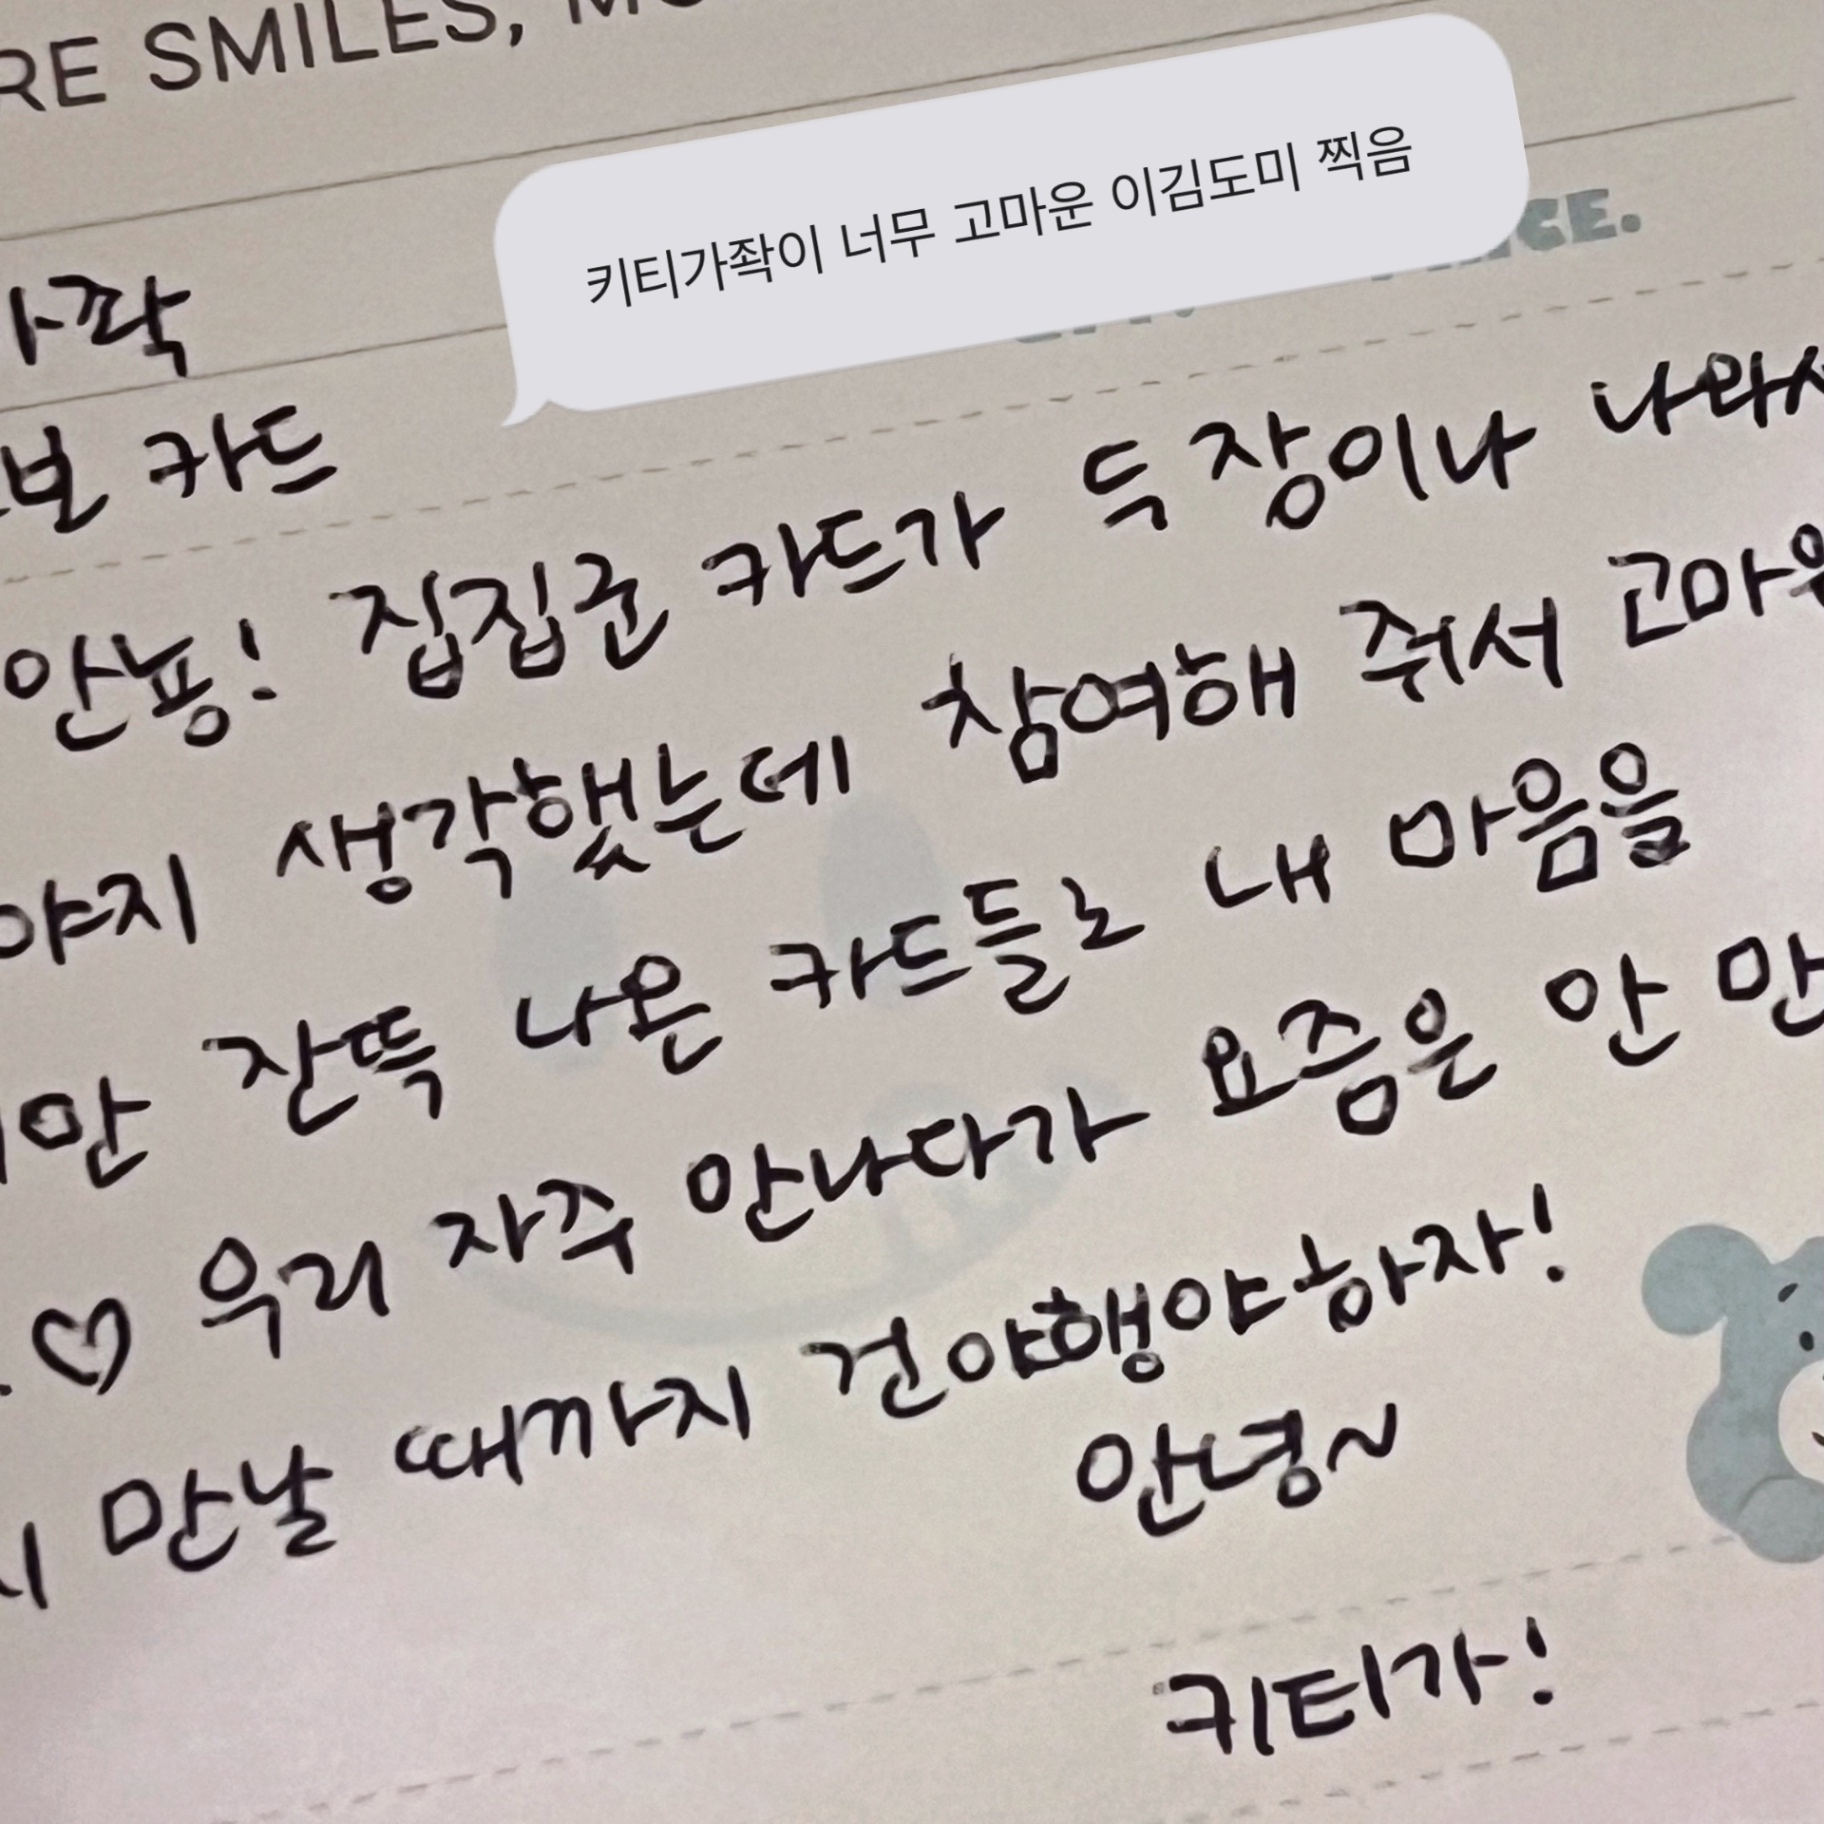 RE SMILES,
키티가좍이 너무 고마운 이김도미 찍음
CE.
가좍
보 카드
안뇽! 집집군 카드가 두 장이나 나와서
야지 생각했는데 참여해 줘서 고마워
안 잔뜩 나온 카드들로 내 마음을
♡ 우리 자주 만나다가 요즘은 안 만
시 만날 때까지 건야행야하자!
안녕~
키티가!